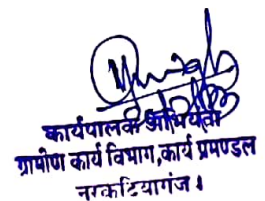 कार्यपालक अभियंता
ग्रामीण कार्य विभाग,कार्य प्रमण्डल
नरकटियागंज।